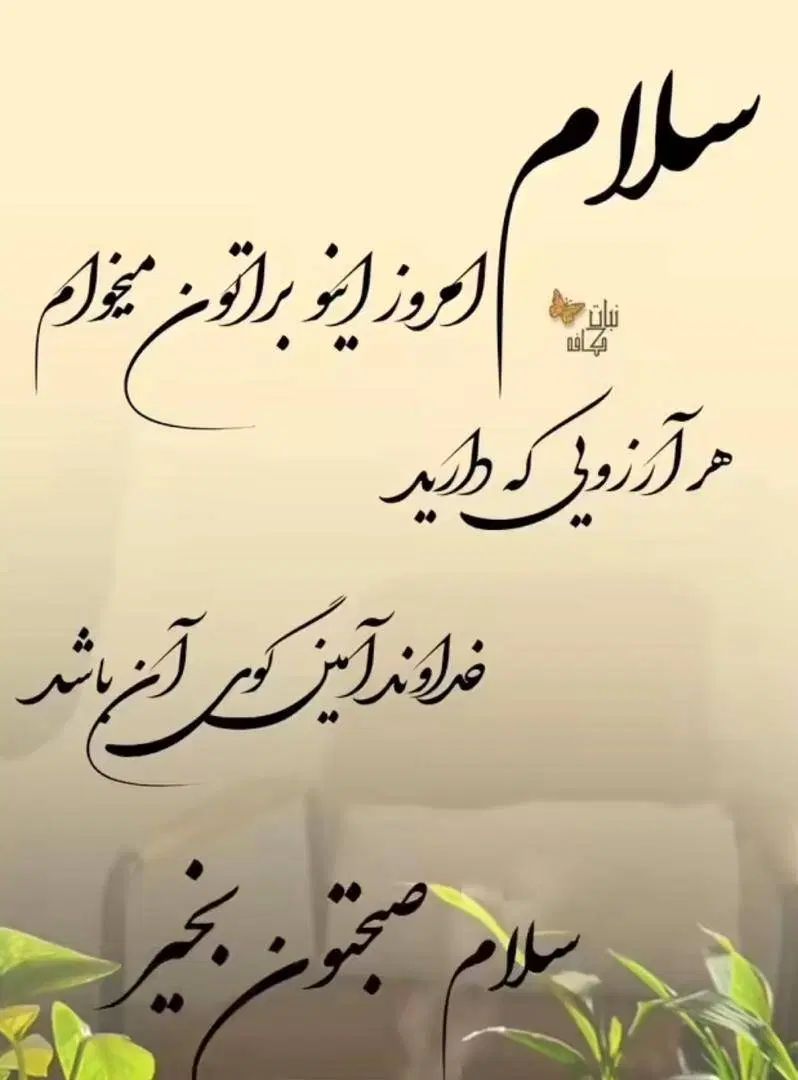 سلام
امروز اینو براتون میخوام
نبات
کافه
هر آرزویی که دارید
خداوند آمین گوی آن باشد
سلام صبحتون بخیر